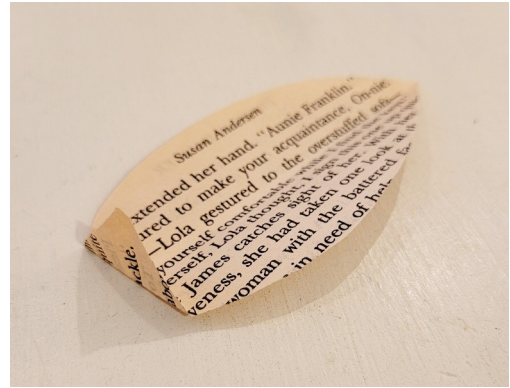 Susan Andersen
xtended her hand. "Aunie Franklin."
ared to make your acquaintance, On-nie."
Lola gestured to the overstuffed sofa.
yourself comfortable while I find
erself, Lola thought, I sigh
James catches sight of her. With
veness, she had taken one look at
woman with the battered fa
in need of help
ckle.